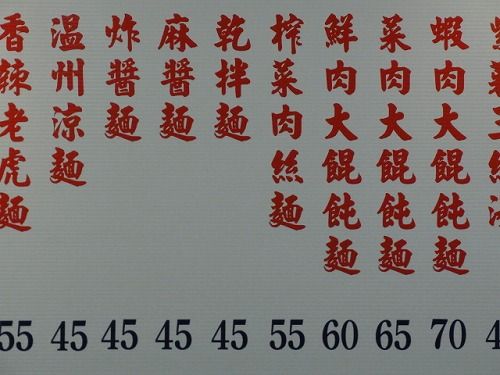 蝦肉大餛飩麵 70
菜肉大餛飩麵 65
鮮肉大餛飩麵 60
榨菜肉絲麵 55
乾拌麵 45
麻醬麵 45
炸醬麵 45
溫州涼麵 45
香辣老虎麵 55